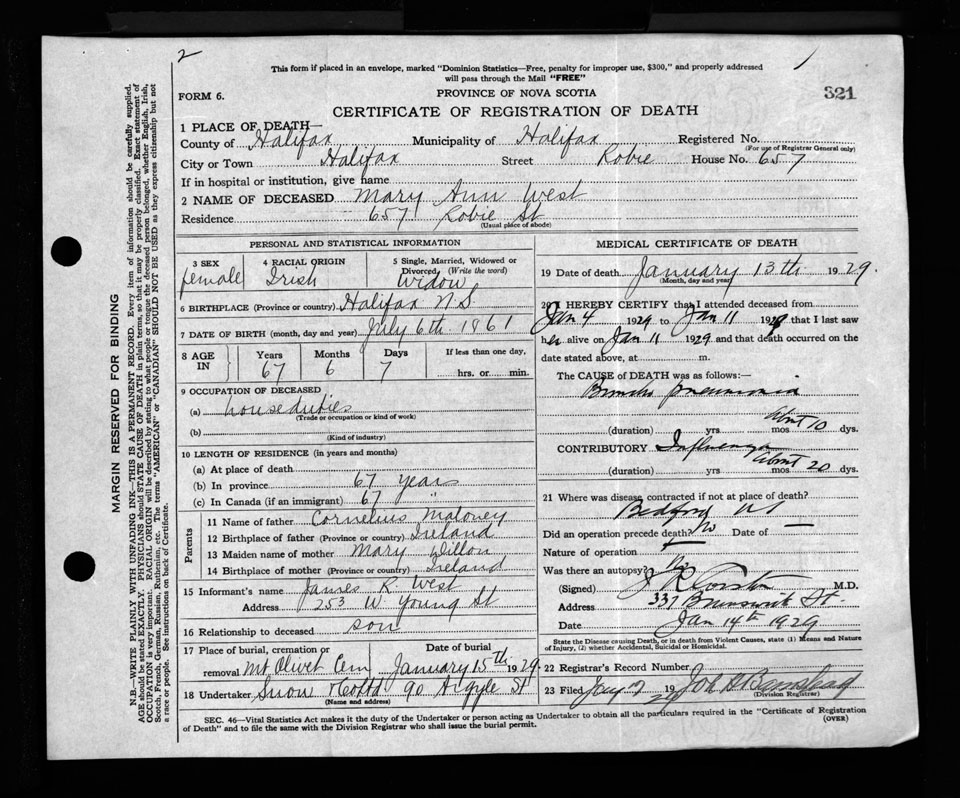 2
This form if placed in an envelope, marked "Dominion Statistics—Free, penalty for improper use, $300," and properly addressed
will pass through the Mail "FREE"
FORM 6.
PROVINCE OF NOVA SCOTIA
321
CERTIFICATE OF REGISTRATION OF DEATH
1 PLACE OF DEATH—
County of Halifax Municipality of Halifax Registered No.
(For use of Registrar General only)
City or Town Halifax Street Robie House No. 657
If in hospital or institution, give name
2 NAME OF DECEASED Mary Ann West
Residence 657 Robie St
(Usual place of abode)
PERSONAL AND STATISTICAL INFORMATION
3 SEX female
4 RACIAL ORIGIN Irish
5 Single, Married, Widowed or
Divorced, (Write the word)
Widow
6 BIRTHPLACE (Province or country) Halifax N.S.
7 DATE OF BIRTH (month, day and year) July 6th 1861
8 AGE IN Years 67 Months 6 Days 7
If less than one day,
hrs. or min.
9 OCCUPATION OF DECEASED
(a) houseduties
(Trade or occupation or kind of work)
(b)
(Kind of industry)
10 LENGTH OF RESIDENCE (in years and months)
(a) At place of death
(b) In province 67 years
(c) In Canada (if an immigrant) 67 "
Parents
11 Name of father Cornelius Maloney
12 Birthplace of father (Province or country) Ireland
13 Maiden name of mother Mary Dillon
14 Birthplace of mother (Province or country) Ireland
15 Informant's name James R. West
Address 253 W Young St
16 Relationship to deceased son
17 Place of burial, cremation or Date of burial
removal Mt Olivet Cem January 15th 1929
18 Undertaker Snow & Co Ltd 90 Argyle St
(Name and address)
MEDICAL CERTIFICATE OF DEATH
19 Date of death January 13th 1929.
(Month, day and year)
20 I HEREBY CERTIFY that I attended deceased from
Jan 4 1929 to Jan 11 1929 that I last saw
her alive on Jan 11 1929 and that death occurred on the
date stated above, at m.
The CAUSE of DEATH was as follows:—
Broncho pneumonia
(duration) yrs mos about 10 dys.
CONTRIBUTORY Influenza
(duration) yrs. mos about 20 dys.
21 Where was disease contracted if not at place of death?
Bedford NS
Did an operation precede death? No Date of —
Nature of operation
Was there an autopsy? No
(Signed) M.D.
Address 337 Brunswick St.
Date Jan 14th 1929
State the Disease causing Death, or in death from Violent Causes, state (1) Means and Nature
of Injury, (2) whether Accidental, Suicidal or Homicidal.
22 Registrar's Record Number
23 Filed 19
(Division Registrar)
SEC. 46—Vital Statistics Act makes it the duty of the Undertaker or person acting as Undertaker to obtain all the particulars required in the "Certificate of Registration
of Death" and to file the same with the Division Registrar who shall issue the burial permit.
(OVER)
MARGIN RESERVED FOR BINDING
N.B.—WRITE PLAINLY WITH UNFADING INK—THIS IS A PERMANENT RECORD. Every item of information should be carefully supplied.
AGE should be stated EXACTLY. PHYSICIANS should STATE CAUSE OF DEATH in plain terms, so that it may be properly classified. Exact statement of
OCCUPATION is very important. RACIAL ORIGIN will be described by stating to what people or tongue the deceased person belonged, whether English, Irish,
Scotch, French, German, Russian, Ruthenian, etc. The terms "AMERICAN" or "CANADIAN" SHOULD NOT BE USED as they express citizenship but not
a race or people. See instructions on back of Certificate.